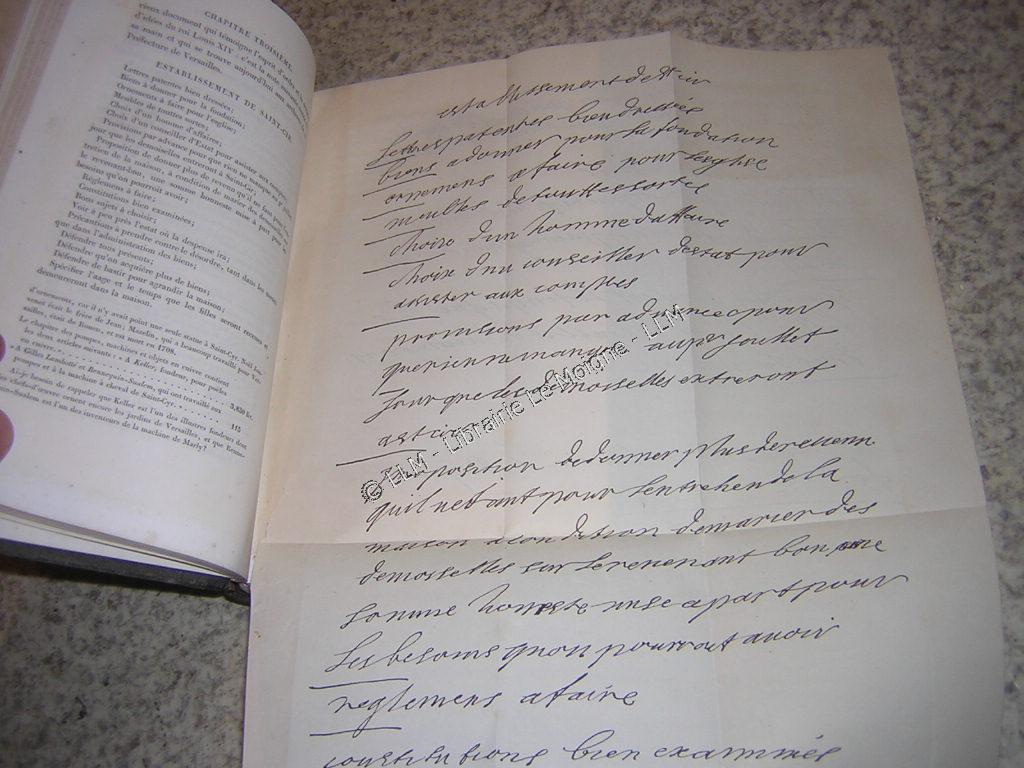 CHAPITRE TROISIÈME.
rieux document qui témoigne l'esprit d'ordre
d'idées du roi Louis XIV : c'est la note suivante
sa main et qui se trouve aujourd'hui aux
Préfecture de Versailles.
ESTABLISSEMENT DE SAINT-CIR
Lettres patentes bien dressées;
Biens à donner pour la fondation;
Ornements à faire pour l'eglise;
Meubles de touttes sortes;
Choix d'un homme d'affaires;
Choix d'un conseiller d'Estat pour assister aux comptes;
Provisions par advance pour que rien ne manque au
jour que les demoiselles entreront à Saint-Cir;
Proposition de donner plus de revenu qu'il ne faut pour
tretien de la maison, à condition de marier des demoiselles
le revenant-bon, une somme honneste mise à part pour
besoins qu'on pourroit avoir;
Règlemens à faire;
Constitutions bien examinées;
Bons sujets à choisir;
Voir à peu près l'estat où la despense ira;
Précautions à prendre contre le désordre, tant dans les mœurs
que dans l'administration des biens;
Défendre tous présents;
Défendre qu'on acquière plus de biens;
Défendre de bastir pour agrandir la maison;
Spécifier l'aage et le temps que les filles seront receues et
demeureront dans la maison.
d'ornements, car il n'y avait point une seule statue à Saint-Cyr. Noël Jou-
venet était le frère de Jean; Mazeline, qui a beaucoup travaillé pour Ver-
sailles, était de Rouen, et est mort en 1708.
Le chapitre des pompes, machines et objets en cuivre contient
les deux articles suivants : « A Keller, fondeur, pour poêles
en cuivre . . . . . 3,820 liv.
« A Gilles Lambotte et Rennequin-Sualem, qui ont travaillé aux
pompes et à la machine à cheval de Saint-Cyr . . . . . 115
Ai-je besoin de rappeler que Keller est l'un des illustres fondeurs dont
les chefs-d'œuvre ornent encore les jardins de Versailles, et que Renne-
quin-Sualem est l'un des inventeurs de la machine de Marly?
establissement de St cir
lettres patentes bien dressées
biens a donner pour la fondation
ornemens a faire pour leglise
meubles de touttes sortes
choix dun homme daffaire
choix dun conseiller destat pour
assister aux comptes
provisions par advance pour
que rien ne manque au pr juillet
jour que les demoiselles entreront
a st cir
proposition de donner plus de revenu
quil ne faut pour lentretien de la
maison a condition de marier des
demoiselles sur le revenant bon une
somme honeste mise a part pour
les besoins quon pourroit avoir
reglemens a faire
constitutions bien examinées
© LLM - Librairie Le-Moigne - LLM